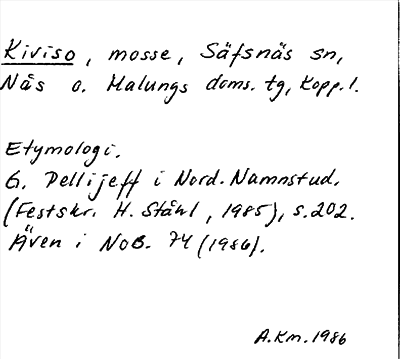 Kiviso, mosse, Säfsnäs sn,
Nås o. Malungs doms. tg, Kopp. l.
Etymologi.
G. Pellijeff i Nord. Namnstud.
(Festskr. H. Ståhl, 1985), s. 202.
Även i NoB. 74 (1986).
A.Km. 1986